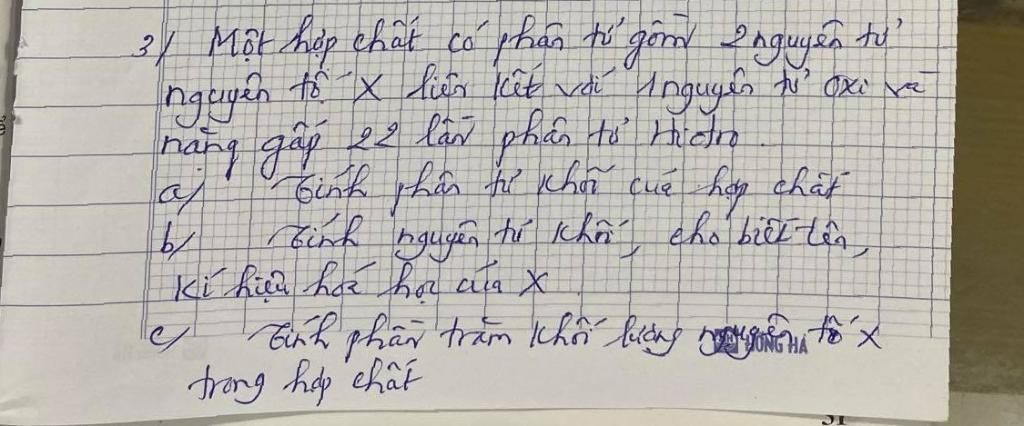 3/ Một hợp chất có phân tử gồm 2 nguyên tử
nguyên tố X liên kết với 1 nguyên tử oxi và
nặng gấp 22 lần phân tử Hidro.
a/ Tính phân tử khối của hợp chất
b/ Tính nguyên tử khối, cho biết tên,
kí hiệu hoá học của X.
c/ Tính phần trăm khối lượng nguyên tố X
HỒNG HÀ
trong hợp chất
31